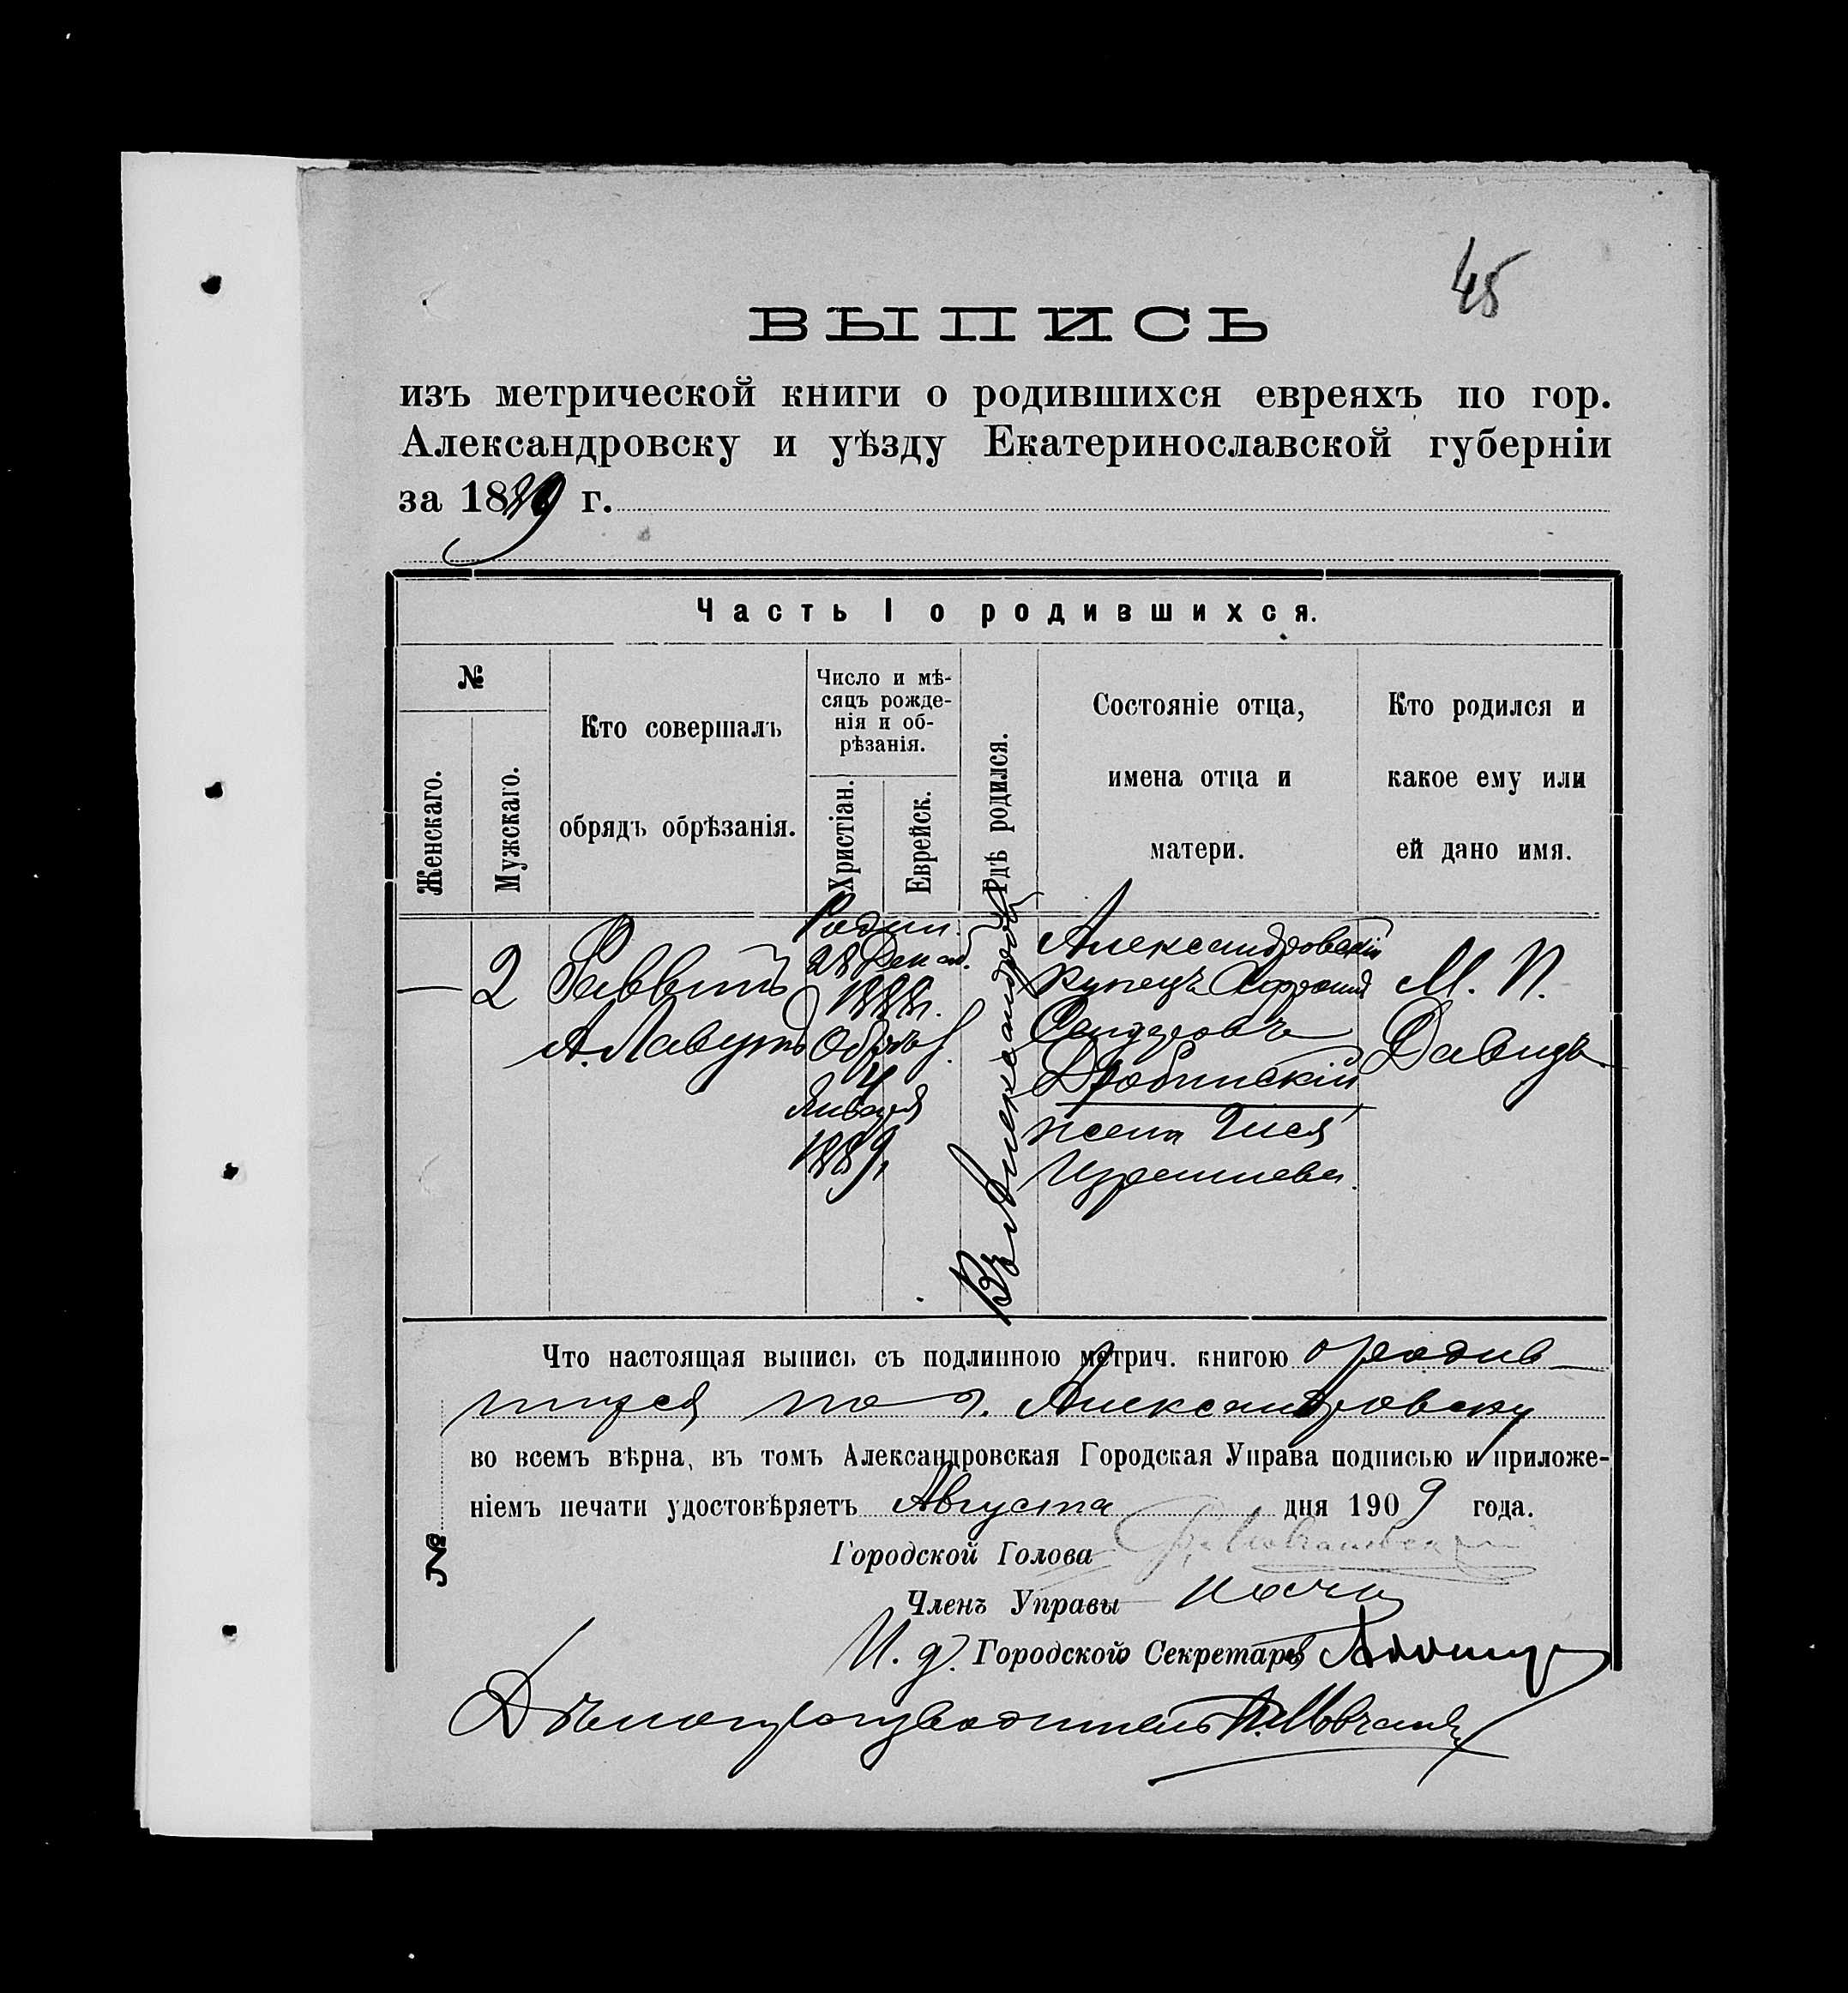 45
ВЫПИСЬ
изъ метрической книги о родившихся евреяхъ по гор.
Александровску и уѣзду Екатеринославской губерніи
за 1889 г.
Часть I о родившихся.
№
Женскаго.
Мужскаго.
Кто совершалъ
обрядъ обрѣзанія.
Число и мѣ-
сяцъ рожде-
нія и об-
рѣзанія.
Христіан.
Еврейск.
Гдѣ родился.
Состояніе отца,
имена отца и
матери.
Кто родился и
какое ему или
ей дано имя.
—
2
Раввинъ
А. Лавутъ
Родил.
28 Декаб.
1888г.
Обрѣз.
4
Января
1889г.
Въ Александров
Александровскій
купецъ
Сендеровъ
Дробинскій
жена
Израилева.
М. П.
Давидъ
Что настоящая выпись съ подлинною метрич. книгою о родив-
шихся по г. Александровску
во всемъ вѣрна, въ томъ Александровская Городская Управа подписью и приложе-
ніемъ печати удостовѣряетъ Августа дня 1909 года.
№
Городской Голова
Членъ Управы
И. д. Городского Секретаря
Дѣлопроизводитель